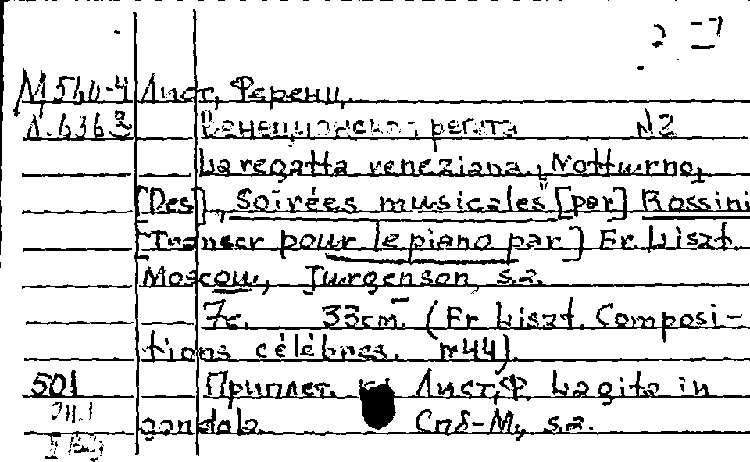 М560-4 Лист, Ференц.
Л.636 Венецианская регата №2
La regatta veneziana, Notturno,
[Des], Soirées musicales" [par] Rossini
[Transcr pour le piano par] Fr. Liszt.
Moscou, Jurgenson, s.a.
7с. 33cm. (Fr Liszt. Composi-
tions célèbres. N44).
501 Приплет. к: Лист, Ф. La gita in
gondola. Спб-М, s.a.